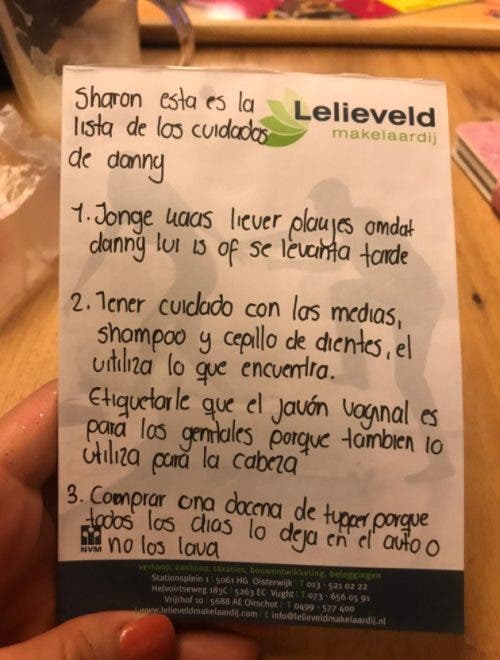 Sharon esta es la
lista de los cuidados
de danny
Lelieveld
makelaardij
1. Jonge kaas liever plakjes omdat
danny lui is of se levanta tarde
2. Tener cuidado con las medias,
shampoo y cepillo de dientes, el
utiliza lo que encuentra.
Etiquetarle que el javón vaginal es
para los genitales porque tambien lo
utiliza para la cabeza
3. Comprar una docena de tupper porque
todos los dias lo deja en el auto o
no los lava
NVM
verkoop, aankoop, taxaties, bouwontwikkeling, beleggingen
Stationsplein 1 | 5061 HG Oisterwijk | T 013 - 521 02 22
Helvoirtseweg 183C | 5263 EC Vught | T 073 - 656 05 91
Vrijthof 10 | 5688 AE Oirschot | T 0499 - 577 400
www.lelieveldmakelaardij.com | E info@lelieveldmakelaardij.nl